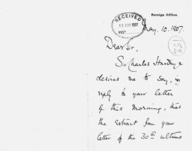 Foreign Office
RECEIVED
May, 10. 1907.
Dear Sir,
Sir Charles Hardinge
desires me to say, in
reply to your letter
of this morning, that
the extract from your
letter of the 30th ultimo